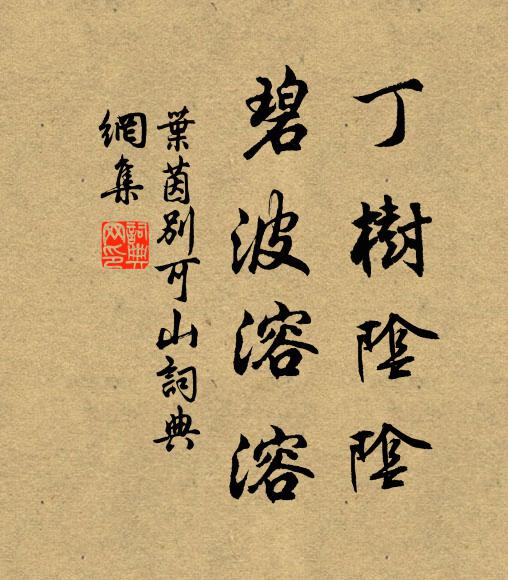 丁樹陰陰
碧波溶溶
葉茵別可山詞典
網集
詞典
网印